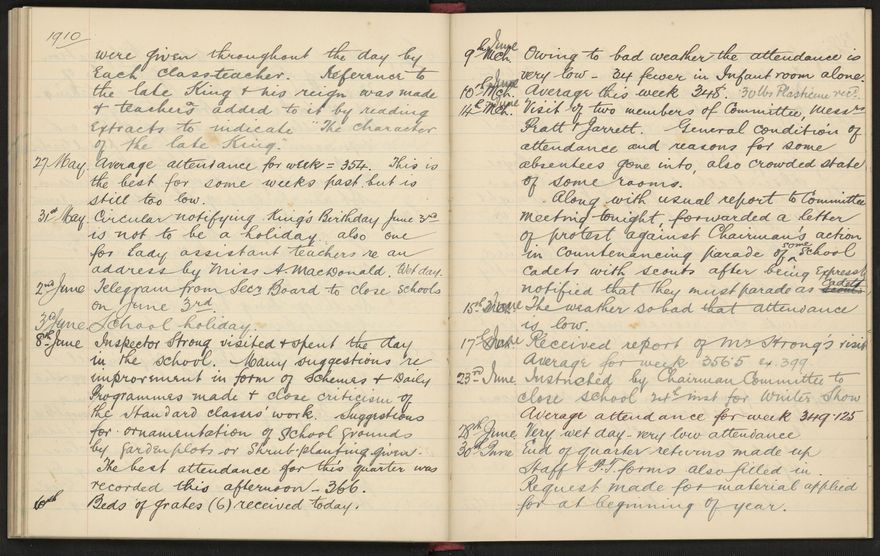 1910
were given throughout the day by
Each class teacher. Reference to
the late King & his reign was made
& teachers added to it by reading
Extracts to indicate "The character
of the late King."
27 May Average attendance for week = 354. This is
the best for some weeks past but is
still too low.
31st May. Circular notifying King's Birthday June 3rd
is not to be a holiday also one
for lady assistant teachers re an
address by Miss A MacDonald. Wet day.
2nd June Telegram from Secy Board to close schools
on June 3rd.
3rd June School holiday.
8th June Inspector Strong visited & spent the day
in the school. Many suggestions re
improvement in form of Schemes & Daily
Programmes made & close criticism of
the standard classes' work. Suggestions
for ornamentation of School Grounds
by garden plots or Shrub-planting given.
The best attendance for this quarter was
recorded this afternoon - 366.
Beds of grates (6) received today.
9th June Mch. Owing to bad weather the attendance is
very low - 34 fewer in Infant room alone.
10th June Mch. Average this week 348. 30 lbs Plasticine recd.
14th June Mch. Visit of two members of Committee, Messrs
Pratt Jarrett. General condition of
attendance and reasons for some
absentees gone into, also crowded state
of some rooms.
Along with usual report to Committee
meeting tonight, forwarded a letter
of protest against Chairman's action
in countenancing parade of some School
cadets with scouts after being Expressly
notified that they must parade as scouts Cadets
15th June The weather so bad that attendance
is low.
17th June Received report of Mr Strong's visit
Average for week 356.5 ex. 399
23rd June. Instructed by Chairman Committee to
close school 24th inst for Winter Show
Average attendance for week 349.125
28th June Very wet day - very low attendance
30th June End of quarter returns made up
Staff & P.T. forms also filled in.
Request made for material applied
for at beginning of year.